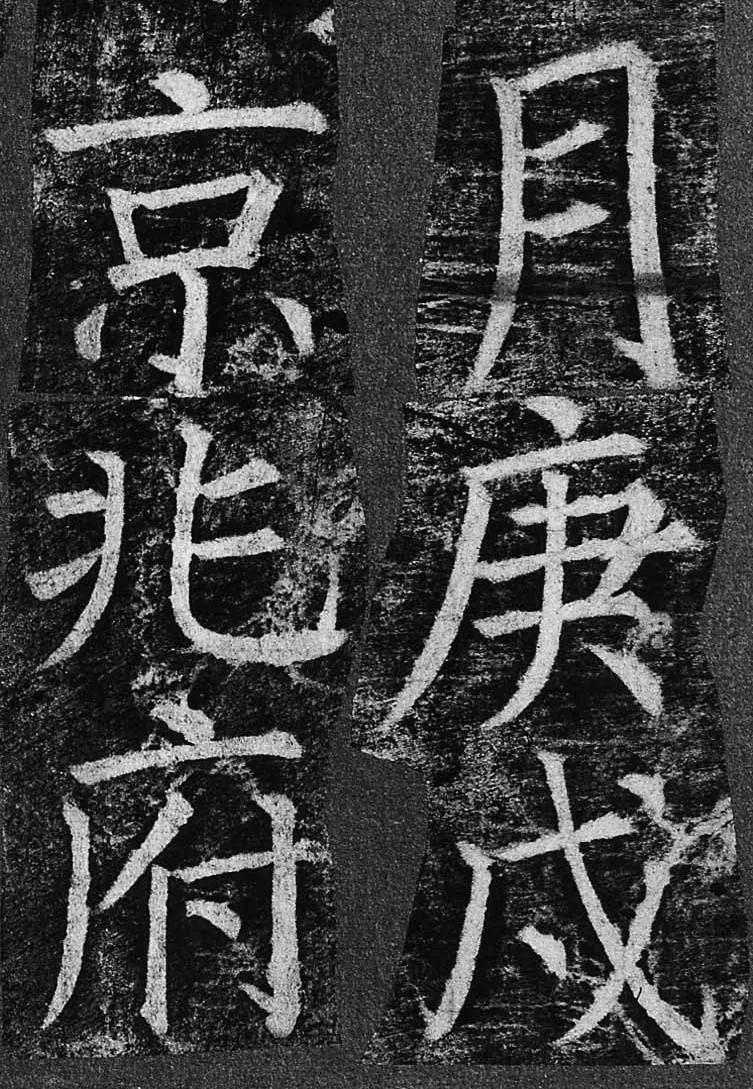 月庚戌
京兆府